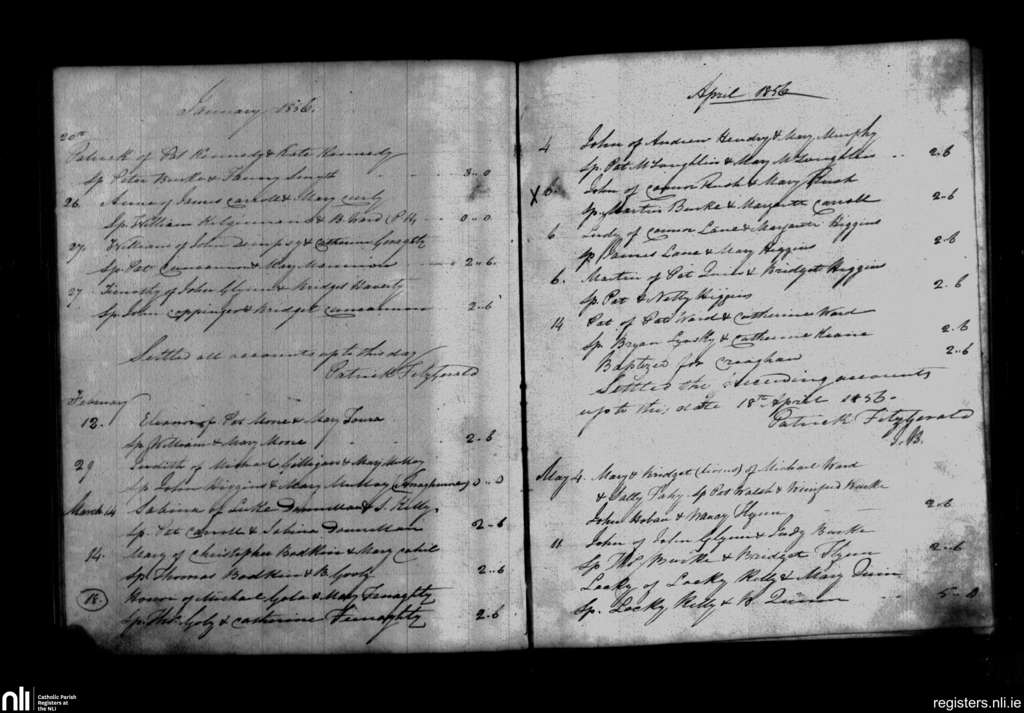 January 1856.
20th
Patrick of Pat Kennedy & Kate Kennedy
Sp Peter Burke & Smyth 3..0
26 James Carroll & Mary
Sp. William & B. Ward 0..0
27 William of John Dempsey & Catherine Geraghty
Sp. Pat Concannon & Mary Mannion 2..6.
27 Timothy of John Glynn & Bridget Haverty
Sp. John Coppinger & Bridget Concannon 2..6
Settled all accounts up to this day
Patrick Fitzgerald
February
12. Eleanor of Pat Mone & Mary
Sp William & Mary Mone 2..6
29 Judith of Michael Gilligan & Mary
Sp. John Higgins & Mary 0..0
March 14 Sabina of Luke Donnellan & S. Kelly
Sp. Pat Carroll & Sabina Donnellan 2..6
14. Mary of Christopher Bodkin & Mary Cahil
Sp. Thomas Bodkin & B. 2..6
Honor of Michael & Mary Finaghty
Sp. Thos. & Catherine Finaghty 2..6
18.
April 1856
4 John of Andrew Hendry & Mary Murphy
Sp. Pat McLoughlin & Mary McLoughlin 2..6
X 6. John of Connor Rush & Mary Rush
Sp. Martin Burke & Margaret Carroll 2..6
6 Judy of Connor Lane & Margaret Higgins
Sp James Lane & Mary Higgins 2..6
6. Martin of Pat Quin & Bridget Higgins
Sp. Pat & Natty Higgins 2..6
14 Pat of Pat Ward & Catherine Ward
Sp. Bryan & Catherine Keane 2..6
Baptized for Creaghan 2..6
Settled the accounts
up to this date 18th April 1856.
Patrick Fitzgerald
May 4. Mary & Bridget (twins) of Michael Ward
& Sally Fahy. Sp Pat Walsh & Winifred Burke
John Hoban & Nancy Flynn 2..6
11 John of John Glynn & Judy Burke
Sp Thos. Burke & Bridget Flynn 2..6
Lacky of Lacky Kelly & Mary Quin
Sp. Lacky Kelly & B. Quinn 5..0
nli
Catholic Parish
Registers at
the NLI
registers.nli.ie